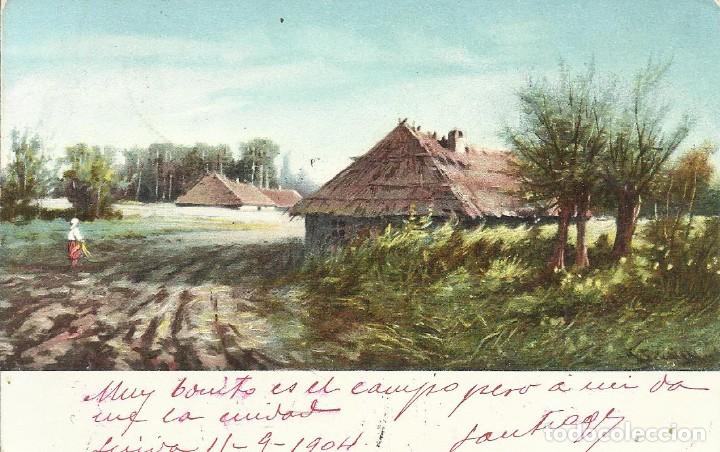 Muy bonito es el campo pero á mi da
me la ciudad
11-9-1904 Santiago
todocoleccion.net